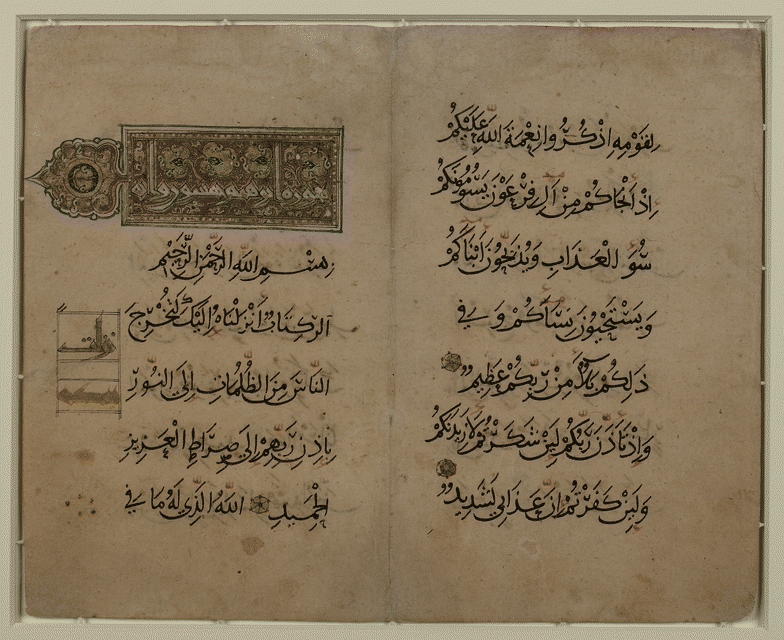 لِقَوْمِهِ اذْكُرُوا نِعْمَةَ اللَّهِ عَلَيْكُمْ
اِذْ اَنْجَاكُمْ مِنْ اَلِ فِرْعَوْنَ يَسُومُونَكُمْ
سُوَ الْعَذَابِ وَيُذَبِّحُونَ اَبْنَاكُمْ
وَيَسْتَحْيُونَ نِسَآكُمْ وَفِي
ذَلِكُمْ بَلَآ مِنْ رَبِّكُمْ عَظِيمٌ
وَاِذْ تَاَذَّنَ رَبُّكُمْ لَئِنْ شَكَرْتُمْ لَاَزِيدَنَّكُمْ
وَلَئِنْ كَفَرْتُمْ اِنَّ عَذَابِي لَشَدِيدٌ
بِسْمِ اللَّهِ الرَّحْمَنِ الرَّحِيمِ
الَر كِتَابٌ اَنْزَلْنَاهُ اِلَيْكَ لِتُخْرِجَ
النَّاسَ مِنَ الظُّلُمَاتِ اِلَى النُّورِ
بِاِذْنِ رَبِّهِمْ اِلَى صِرَاطِ الْعَزِيزِ
الْحَمِيدِ اللَّهِ الَّذِي لَهُ مَا فِي